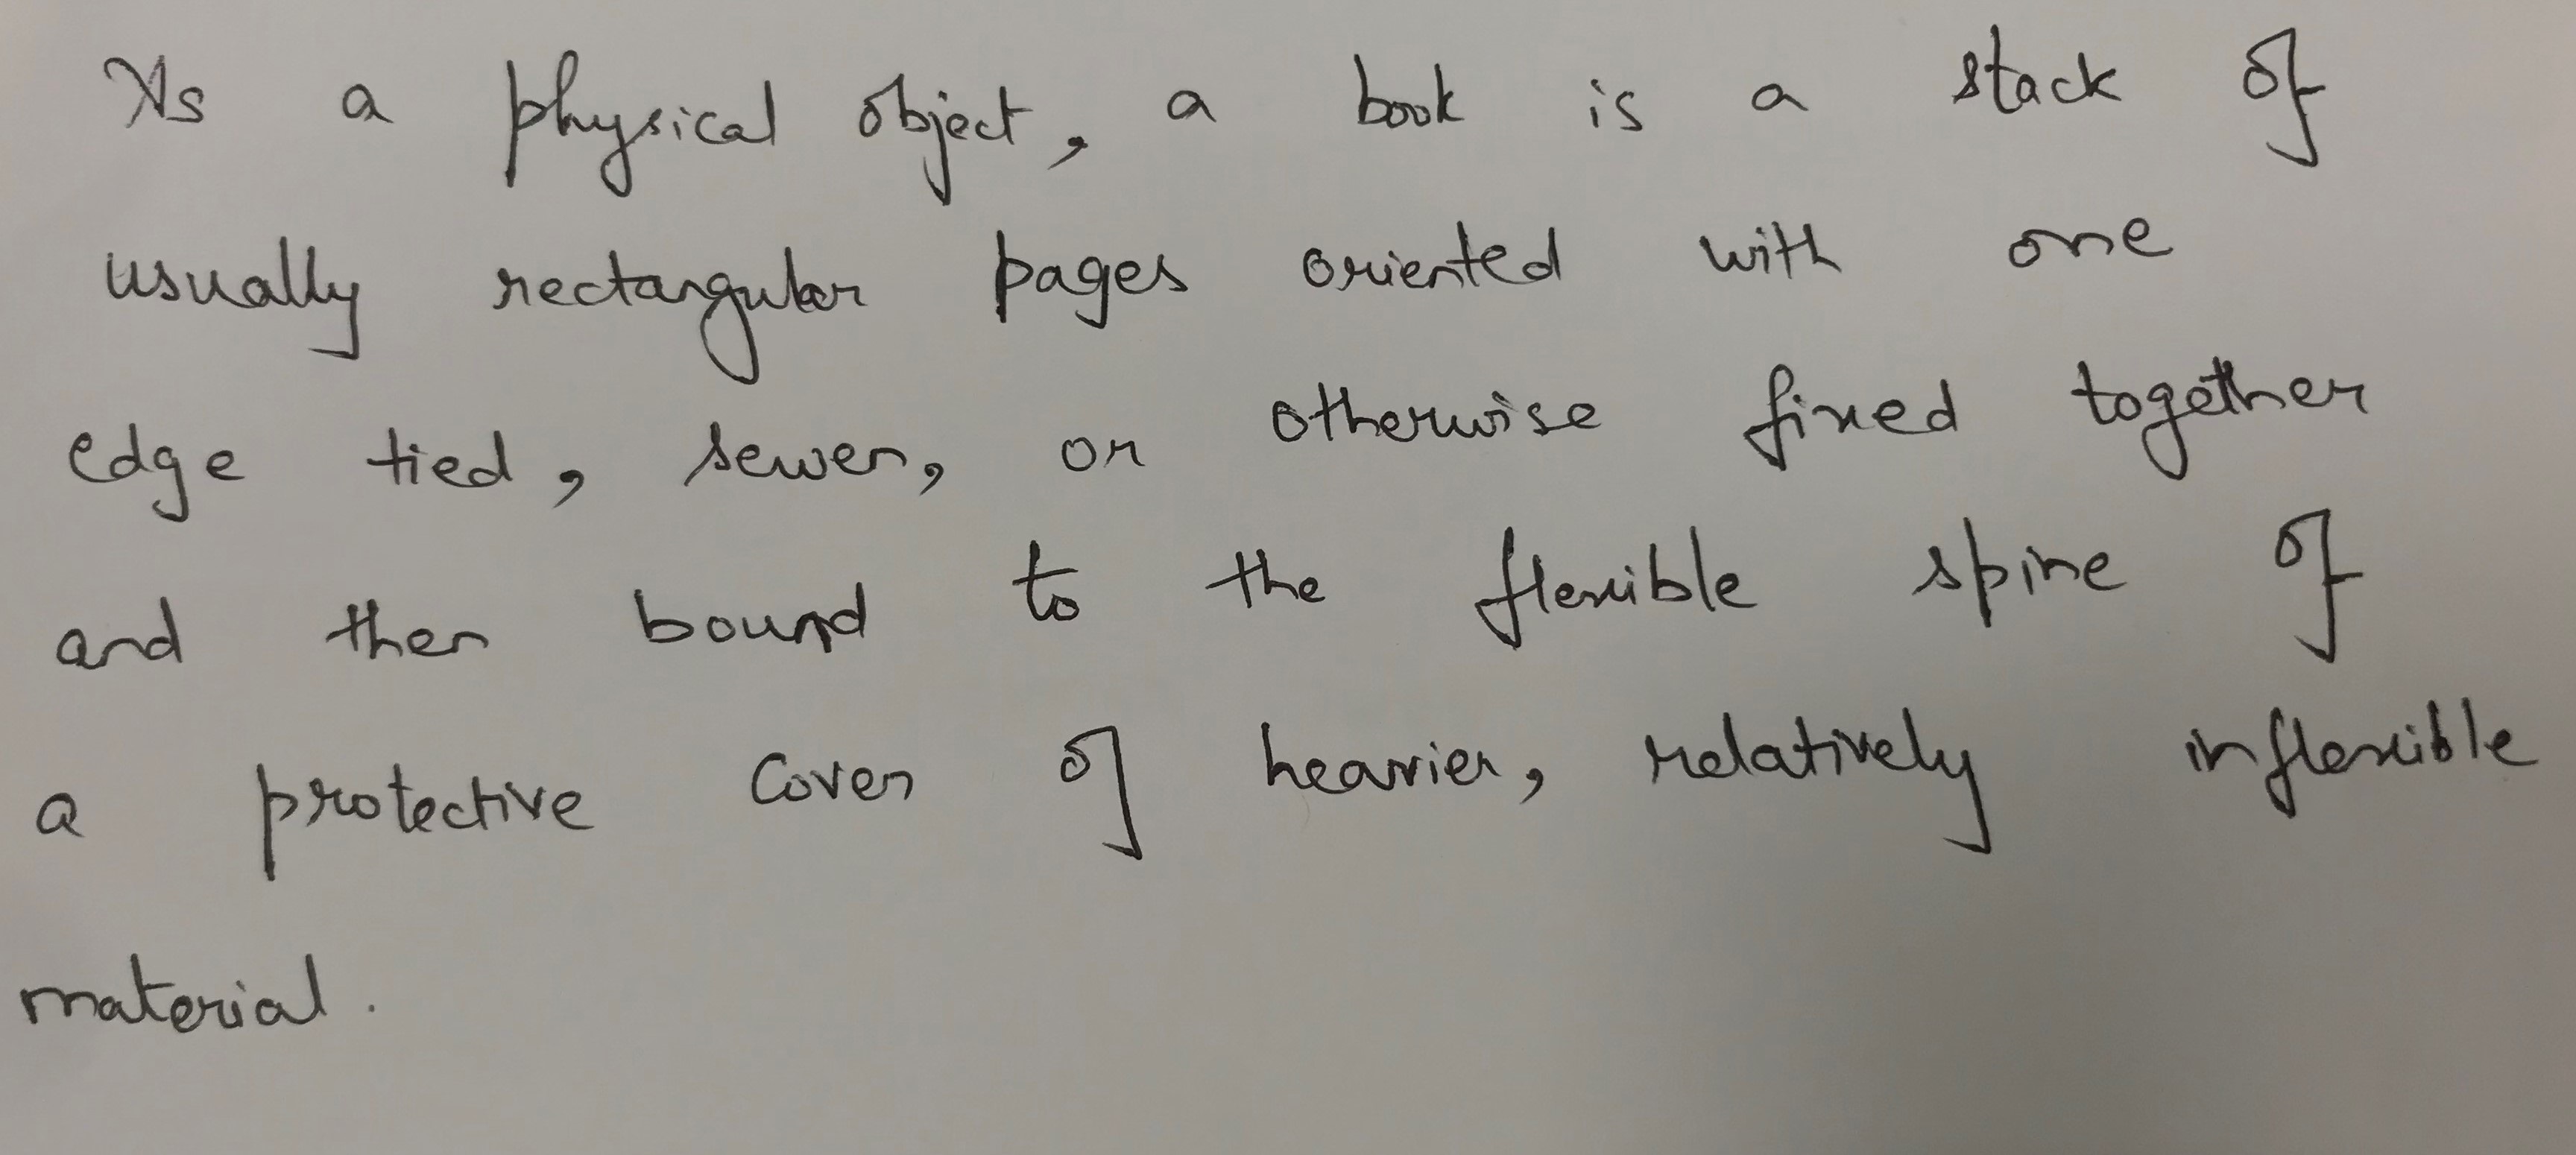 As a physical object, a book is a stack of
usually rectangular pages oriented with one
edge tied, sewen, or otherwise fixed together
and then bound to the flexible spine of
a protective cover of heavier, relatively inflexible
material.